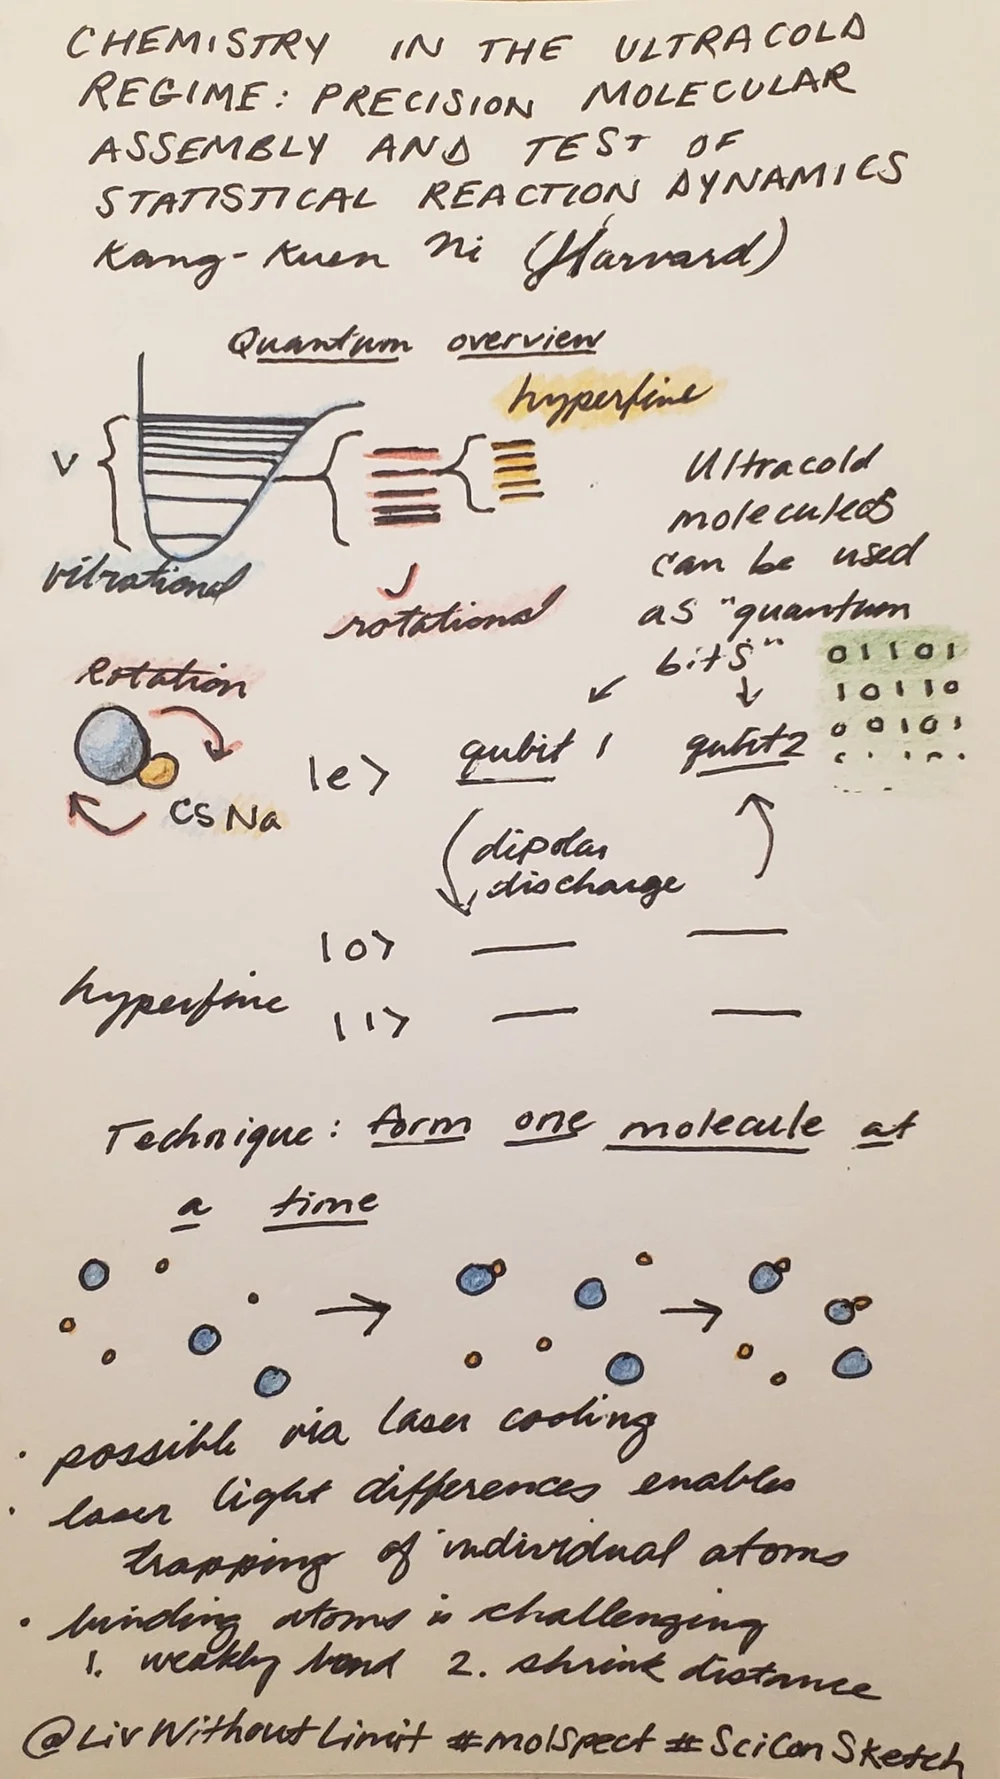 CHEMISTRY IN THE ULTRACOLD
REGIME: PRECISION MOLECULAR
ASSEMBLY AND TEST OF
STATISTICAL REACTION DYNAMICS
Kang-Kuen Ni (Harvard)
Quantum overview
hyperfine
V
vibrational
rotational
Ultracold
molecules
can be used
as "quantum
bits"
01101
10110
00101
Rotation
CSNa
|e>
qubit 1
qubit 2
dipolar
discharge
|0>
hyperfine
|1>
Technique: form one molecule at
a time
• possible via laser cooling
• laser light differences enables
trapping of individual atoms
• binding atoms is challenging
1. weakly bond 2. shrink distance
@LivWithoutLimit #molSpect #SciConSketch